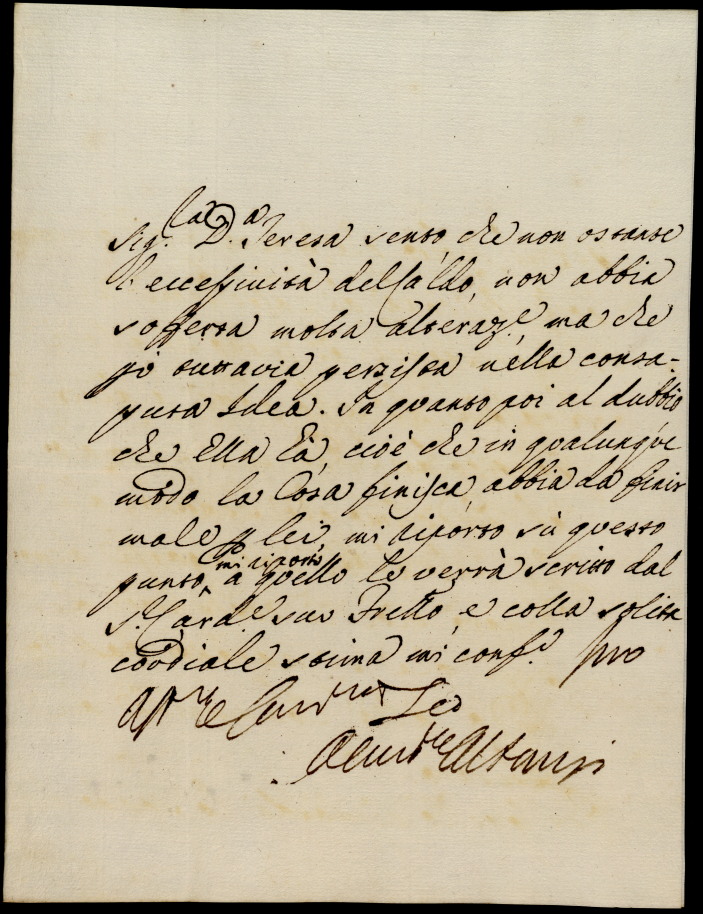 Sig.ra D.a Teresa sento che non ostante
l'eccessività del Caldo, non abbia
sofferta molta alteraz.e ma che
pi tuttavia persista nella consa-
puta Idea. In quanto poi al dubbio
che Ella hà, cioè che in qualunque
modo la Cosa finisca, abbia da finir
male p lei, mi riporto sù questo
mi riporto
punto, a quello le verrà scritto dal
S.r Card.e suo Fretto, e colla solita
cordiale stima mi conf.o pro
Aff.mo
Albani